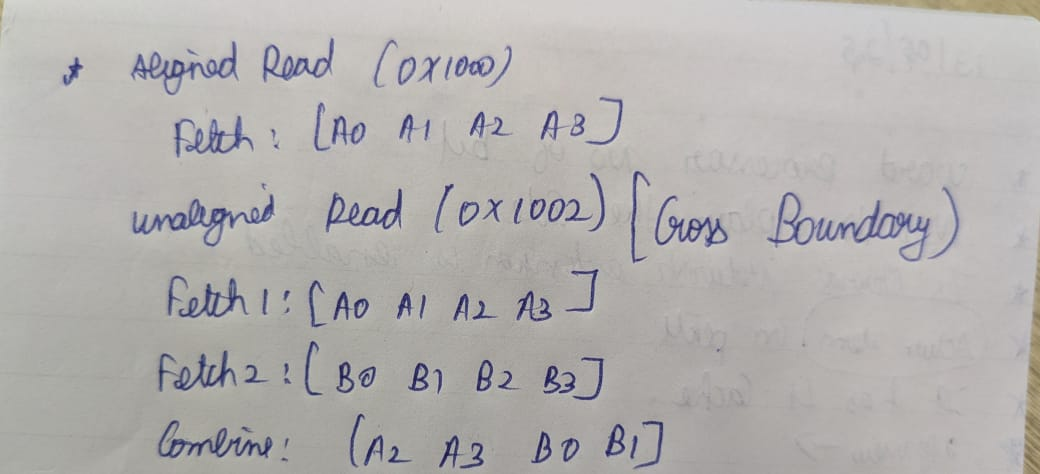 * Aligned Read (0x1000)
Fetch : [A0 A1 A2 A3]
unaligned Read (0x1002) [Cross Boundary)
Fetch 1 : [A0 A1 A2 A3]
Fetch 2 : [B0 B1 B2 B3]
Combine : (A2 A3 B0 B1]